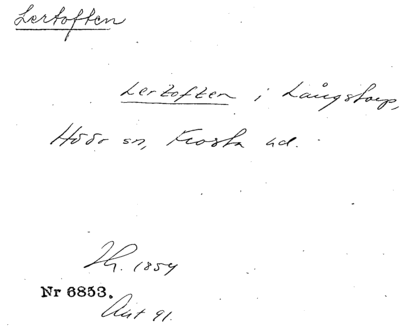 Lertoften
Lertoften i Långstorp,
Höör sn, Frosta hd.
Th. 1854
Nr 6853.
Avt 91.